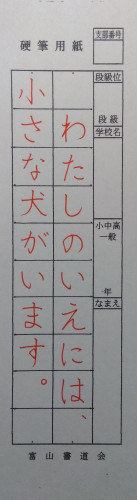 硬筆用紙
わたしのいえには、
小さな犬がいます。
支部番号
段級位
段級
学校名
小中高
一般
年
なまえ
富山書道会